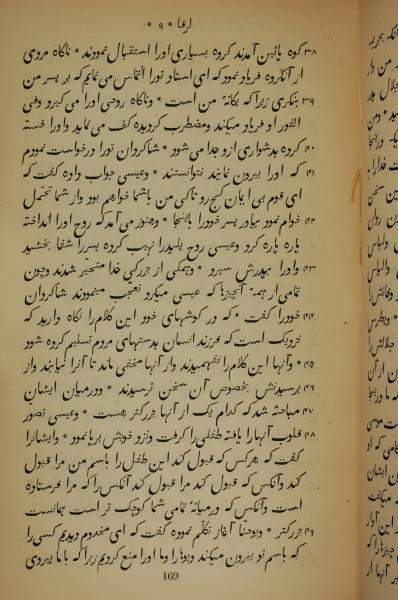 لوقا * ۹ *
۳۸ کوه پائین آمدند کروه بسیاری اورا استقبال نمودند * ناکاه مردی
از آنکروه فریاد نمود که ای استاد تورا التماس می نمایم که بر پسر من
۳۹ بنکری زیرا که یکانهٔ من است * وناکاه روحی اورا می کیرد وفی
الفور او فریاد میکند ومضطرب کردیده کف می نماید واورا خسته
۴۰ کرده بدشواری ازو جدا می شود * شاکردان تورا درخواست نمودم
۴۱ که اورا بیرون نمایند نتوانستند * وعیسی جواب داده کفت که
ای قوم بی ایمان کج رو تا کی من باشما خواهم بود واز شما تحمل
۴۲ خواهم نمود بیاور پسر خودرا باینجا * وهنوز می آمد که روح اورا انداخته
پاره پاره کرد وعیسی روح پلیدرا نهیب کرده پسررا شفا بخشید
۴۳ واورا بپدرش سپرد * وهمکی از بزرکی خدا متحیر شدند وچون
تمامی از همهٔ آنچیزها که عیسی میکرد تعجب مینمودند شاکردان
۴۴ خودرا کفت * که در کوشهای خود این کلام را نکاه دارید که
نزدیک است که فرزند انسان بدستهای مردم تسلیم کرده شود
۴۵ * وآنها این کلام را نفهمیدند واز آنها مخفی ماند تا آنرا نیابند واز
۴۶ پرسیدنش بخصوص آن سخن ترسیدند * ودرمیان ایشان
۴۷ مباحثه شد که کدام یک از آنها بزرکتر هست * وعیسی تصور
۴۸ قلوب آنهارا یافته طفلی را کرفت ونزد خویش برپا نمود * وایشانرا
کفت که هرکس که قبول کند این طفل را باسم من مرا قبول
کند وآنکس که قبول کند مرا قبول کند آنکس را که مرا فرستاده
است وآنکس که درمیانهٔ تمامی شما کوچک تر است همانست
۴۹ بزرکتر * ویوحنا آغاز تکلم نموده کفت که ای مخدوم دیدیم کسی را
که باسم تو بیرون میکند دیوهارا وما اورا منع کردیم زیرا که با ما پیروی
169